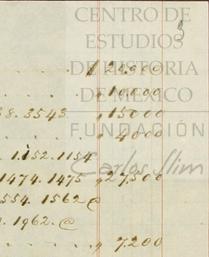 CENTRO DE
ESTUDIOS
DE HISTORIA
DE MÉXICO
FUNDACIÓN
Carlos Slim
" 10000
8. 3543 " 15000
" 4000
. 1152. 1154
1474. 1475 " 27,500
554. 1562 @
. 1962. @
" 7200